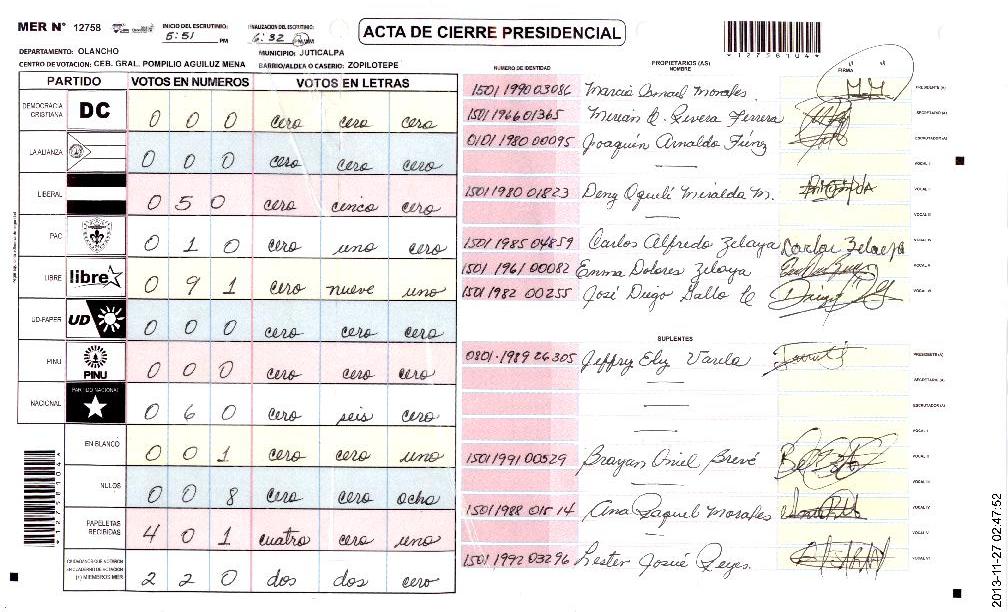 MER N° 12758
INICIO DEL ESCRUTINIO: 5:51 PM
FINALIZACION DEL ESCRUTINIO: 6:32
ACTA DE CIERRE PRESIDENCIAL
*12758104*
DEPARTAMENTO: OLANCHO
MUNICIPIO: JUTICALPA
CENTRO DE VOTACION: CEB. GRAL. POMPILIO AGUILUZ MENA
BARRIO/ALDEA O CASERIO: ZOPILOTEPE
PARTIDO VOTOS EN NUMEROS VOTOS EN LETRAS
DEMOCRACIA CRISTIANA DC 0 0 0 cero cero cero
LA ALIANZA 0 0 0 cero cero cero
LIBERAL 0 5 0 cero cinco cero
PAC 0 1 0 cero uno cero
LIBRE libre 0 9 1 cero nueve uno
UD-FAPER UD 0 0 0 cero cero cero
PINU PINU 0 0 0 cero cero cero
NACIONAL PARTIDO NACIONAL 0 6 0 cero seis cero
EN BLANCO 0 0 1 cero cero uno
NULOS 0 0 8 cero cero ocho
PAPELETAS RECIBIDAS 4 0 1 cuatro cero uno
CIUDADANOS QUE VOTARON
EN CUADERNO DE VOTACION
(+) MIEMBROS MER 2 2 0 dos dos cero
*12758104*
NUMERO DE IDENTIDAD PROPIETARIOS (AS) NOMBRE FIRMA
1501 1990 03086 Marcio Ismael Morales PRESIDENTE(A)
1501 1966 01365 Mirian Rivera Ferrera SECRETARIO(A)
0101 1980 00095 Joaquín Arnaldo ESCRUTADOR(A)
VOCAL I
1501 1980 01823 Miralda M. VOCAL II
VOCAL III
1501 1985 04859 Carlos Alfredo Zelaya Carlos Zelaya VOCAL IV
1501 1961 00082 Emma Dolores Zelaya VOCAL V
1501 1982 00255 José Diego VOCAL VI
SUPLENTES
0801-1989 26305 Jeffry Ely Varela PRESIDENTE(A)
SECRETARIO(A)
ESCRUTADOR(A)
VOCAL I
1501 1991 00529 Brayan Oniel Brevé VOCAL II
VOCAL III
1501 1988 01514 Ana Raquel Morales VOCAL IV
VOCAL V
1501 1992 03296 Lester Josué Reyes. VOCAL VI
2013-11-27 02:47:52